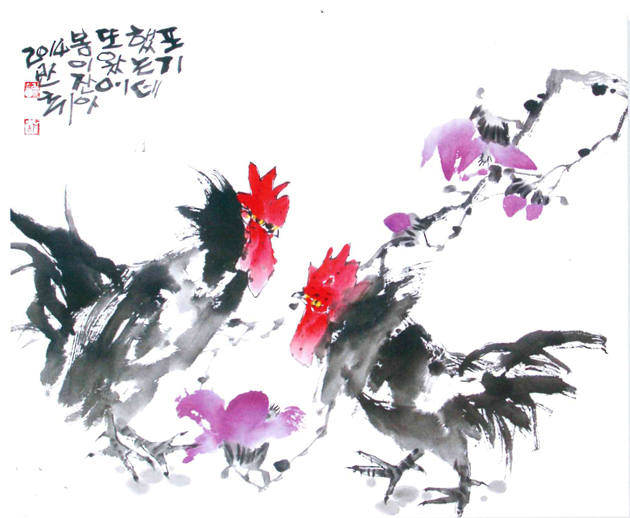 포기
했는데
또왔어
봄이잔아
2014 반취